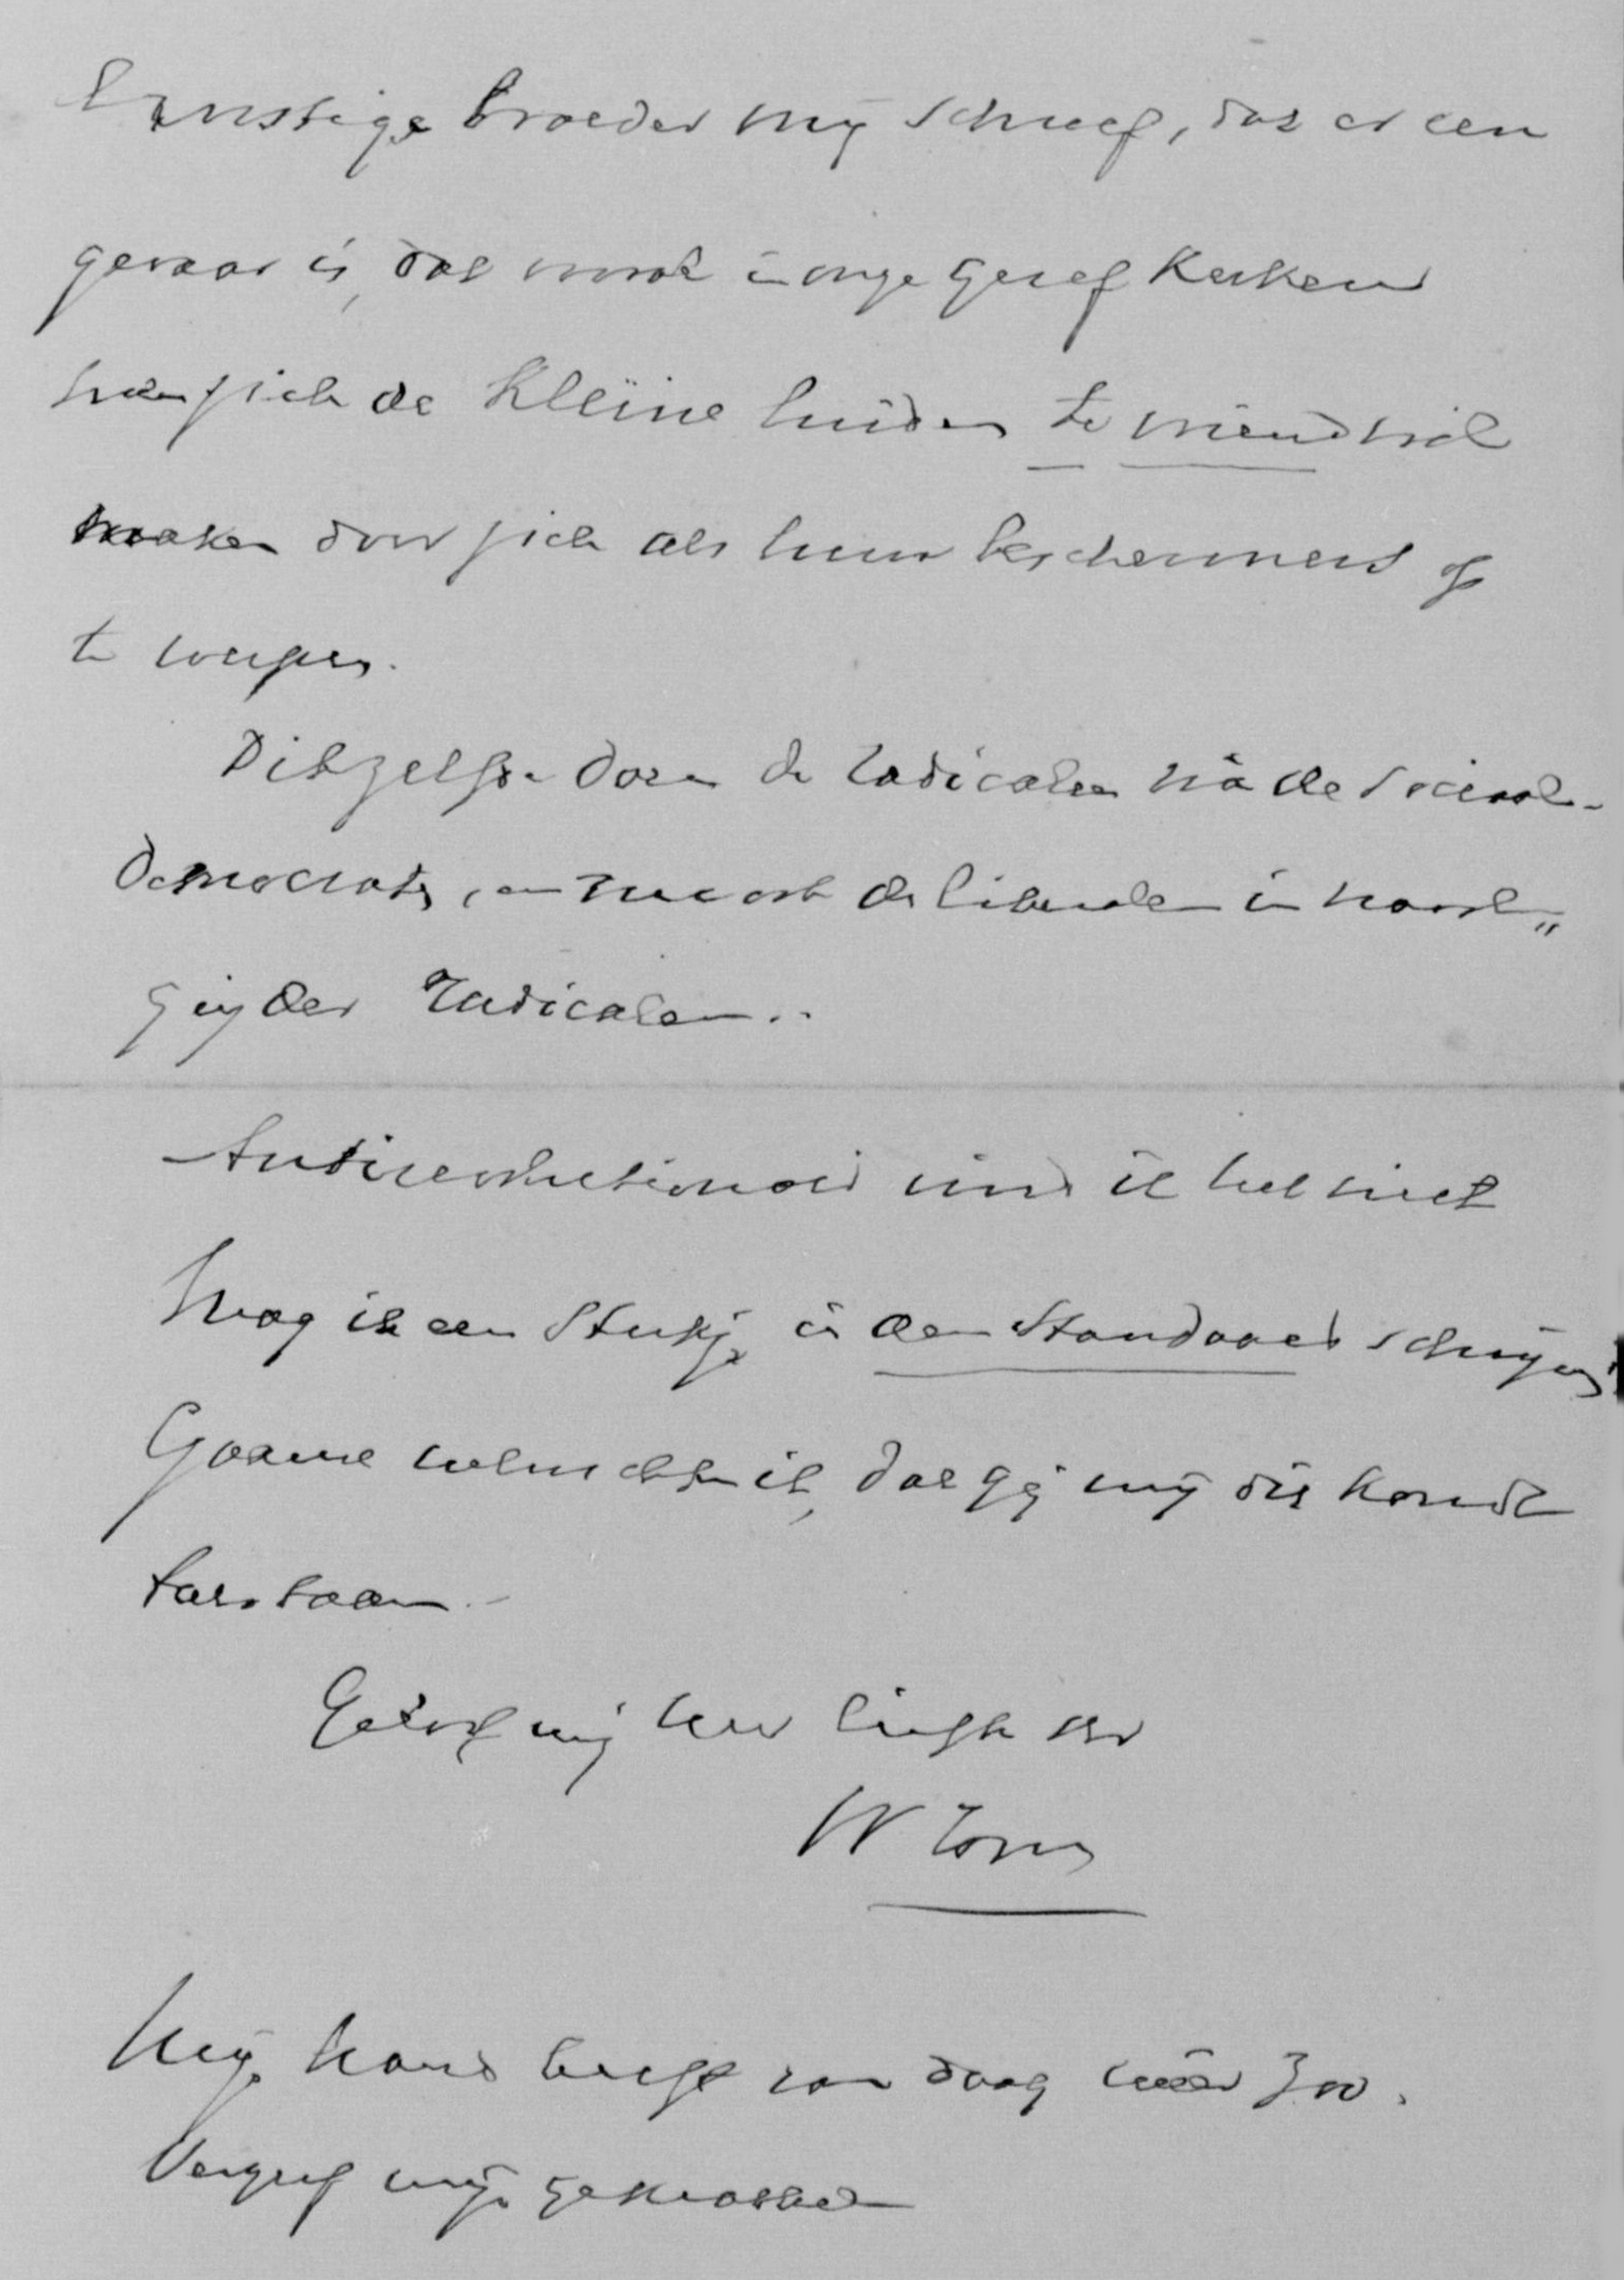 Ernstige broeder mij schreef, dat er een
gevaar is, dat vooral in onze Geref Kerken
men zich de kleine luiden te vriend wil
maken door zich als hun beschermers op
te werpen.
Ditzelfde doen de radicalen na de sociaal-
democraten, en nu ook de liberalen in navol„
ging der Radicalen..
Antirevolutionair vind ik het niet
Mag ik een stukje in den Standaard schrijven?
Gaarne ik, dat gij mij dit kondt
toestaan.-
Geloof mij uw
W
Mijn hand beeft van daag weer zoo.
Vergeef mijn gekrabbel